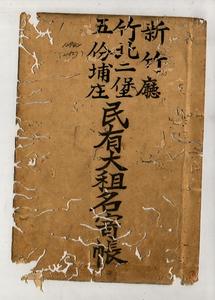 新竹廳
竹北二堡
五份埔庄
民有大租名寄帳